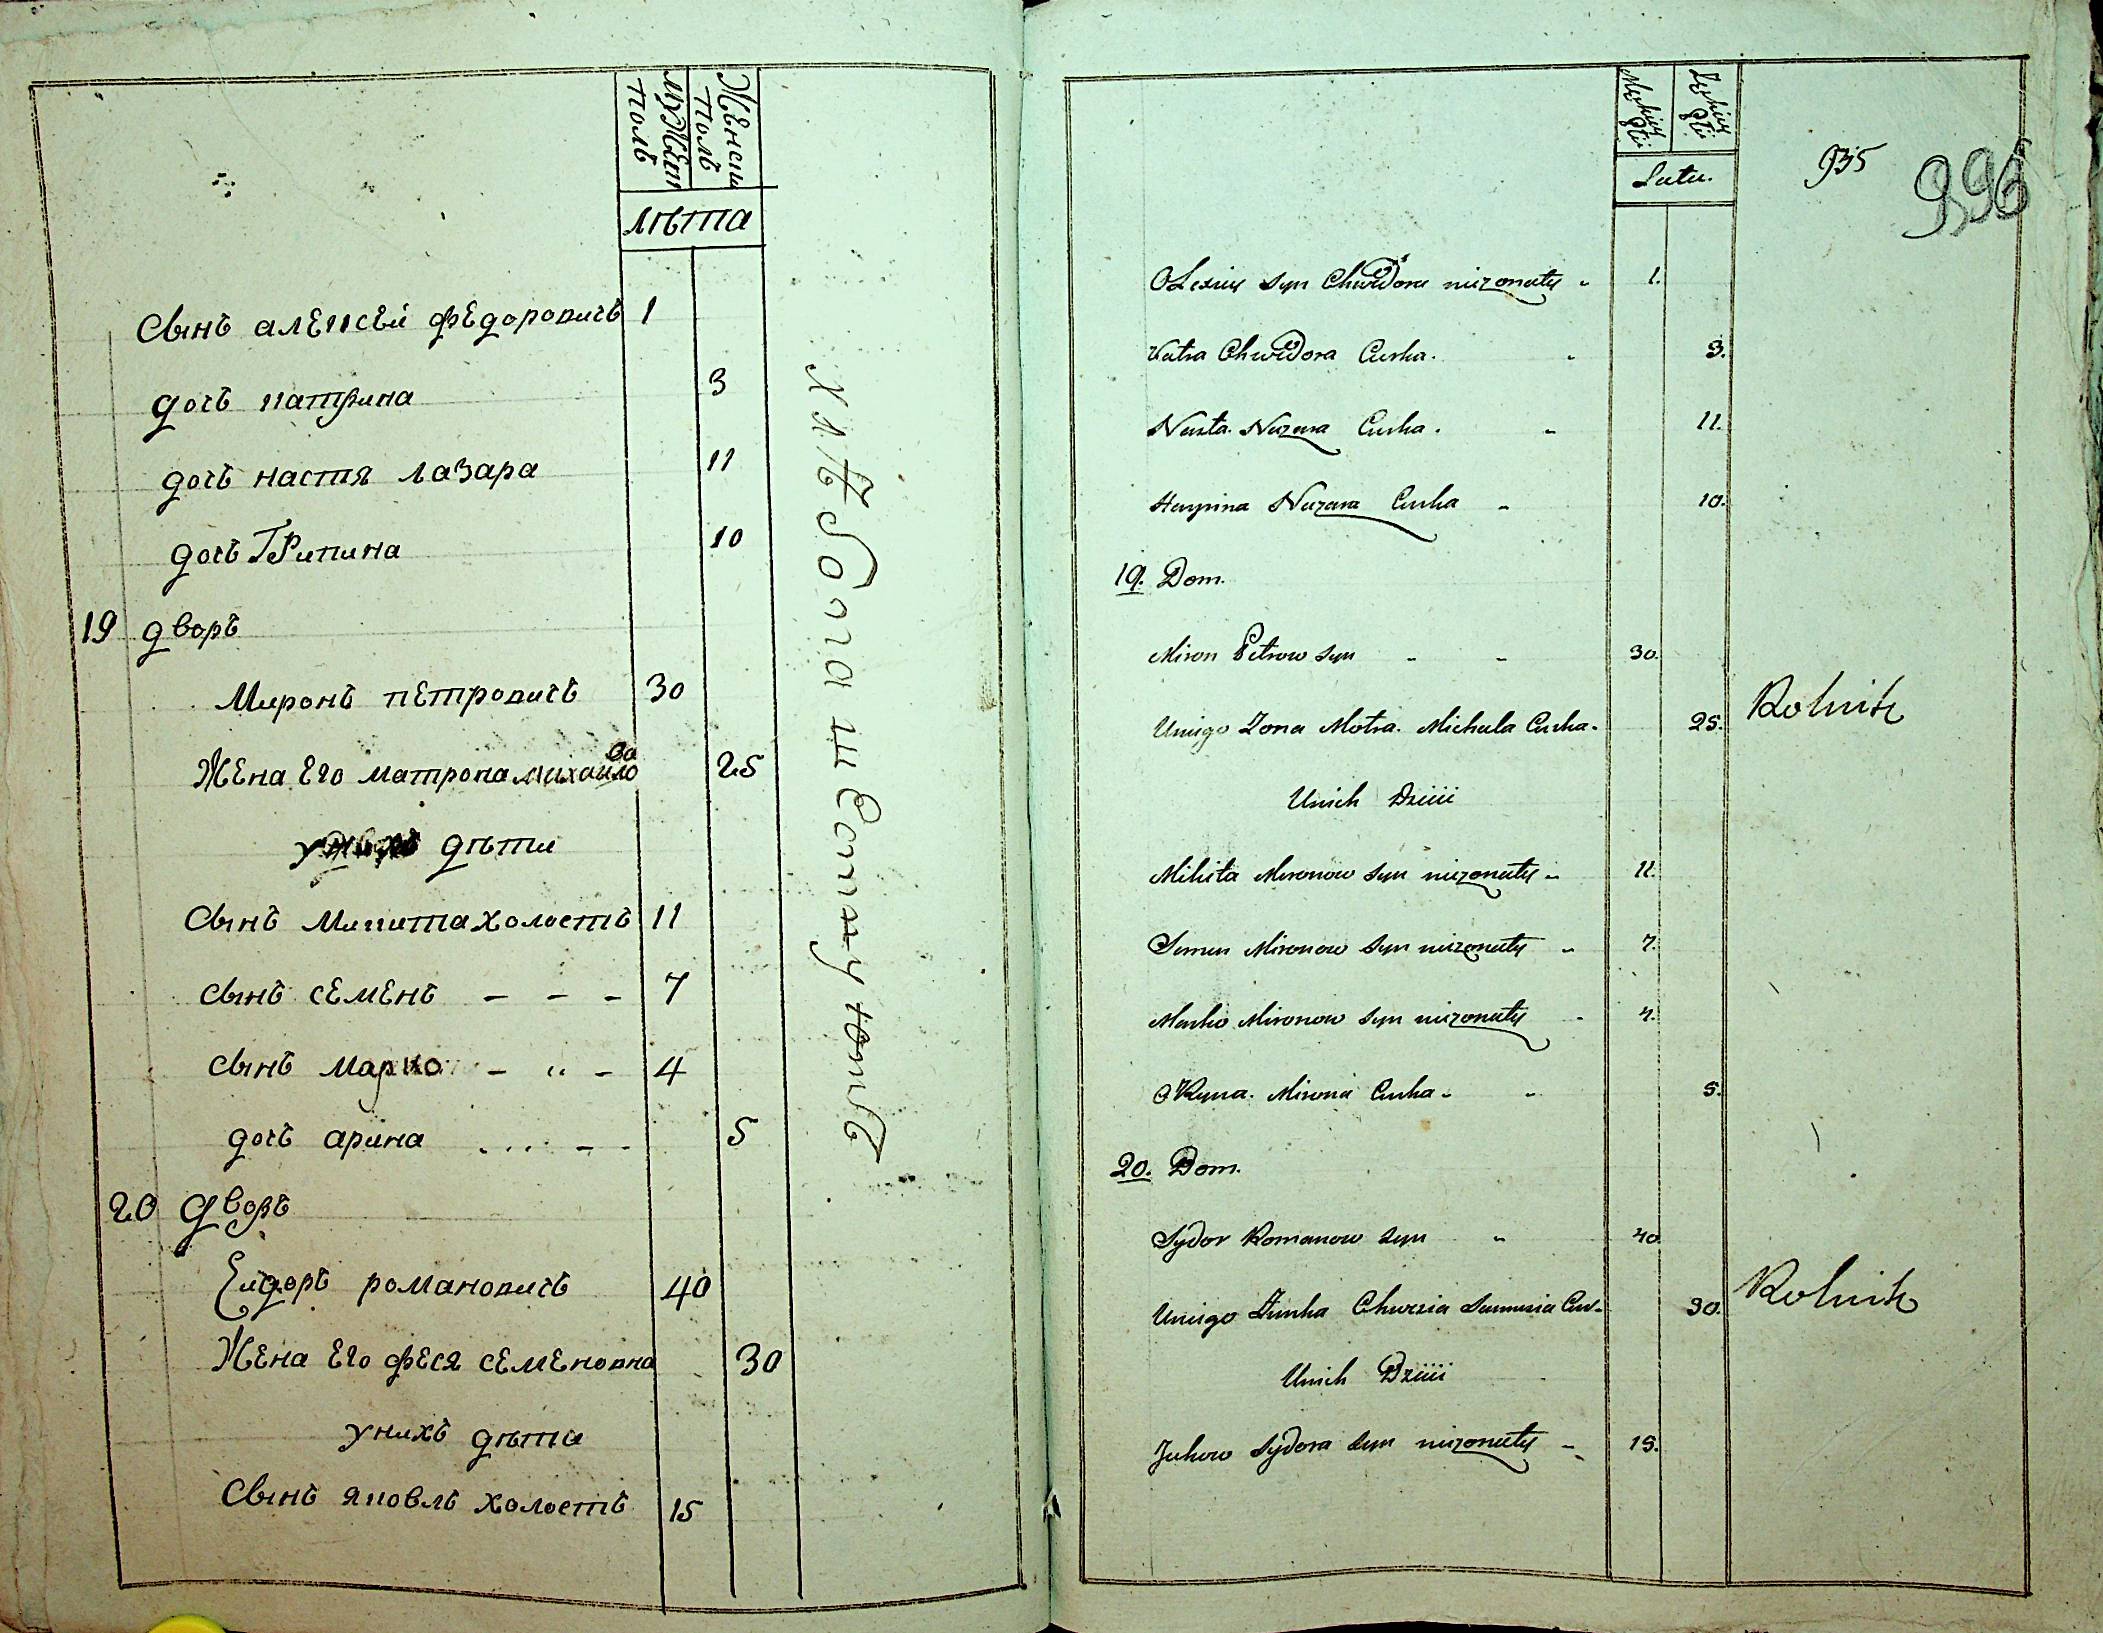 мужеск
полъ
женски
полъ
лѣта
Сынъ алексей федоровичъ 1
дочъ катрина 3
дочъ настя лазара 11
дочъ Грипина 10
19 дворъ
Миронъ петровичъ 30
Жена Его матрона михайлова 25
дѣти
Сынъ микита холостъ 11
сынъ семенъ – – – 7
сынъ марко – „ – 4
дочъ арина 5
20 дворъ
Сидоръ романовичъ 40
Жена Его феся семеновна 30
унихъ дѣти
Сынъ яковлъ холостъ 15
хлѣбопашествуютъ
Męskiey
Płci
Żęskiey
Płci
Lata.
935
996
Olexiey syn Chwedora nieżonaty „ 1.
Katra Chwedora Curka. „ 3.
Nasta Nazara Curka. „ 11.
Haypina Nazara Curka „ 10.
19. Dom.
Miron Petrow syn „ „ 30.
Uniego Żona Motra Michala Curka. 25. Rolnik
Unich Dzieci
Mikita Mironow syn nieżonaty „ 11.
Semen Mironow syn nieżonaty „ 7.
Marko Mironow syn nieżonaty „ 4.
Oryna Mirona Curka „ „ 5.
20. Dom.
Sydor Romanow syn „ 40
Uniego Żonka Chwesia Curk. 30. Rolnik
Unich Dzieci
Jakow Sydora syn nieżonaty „ 15.